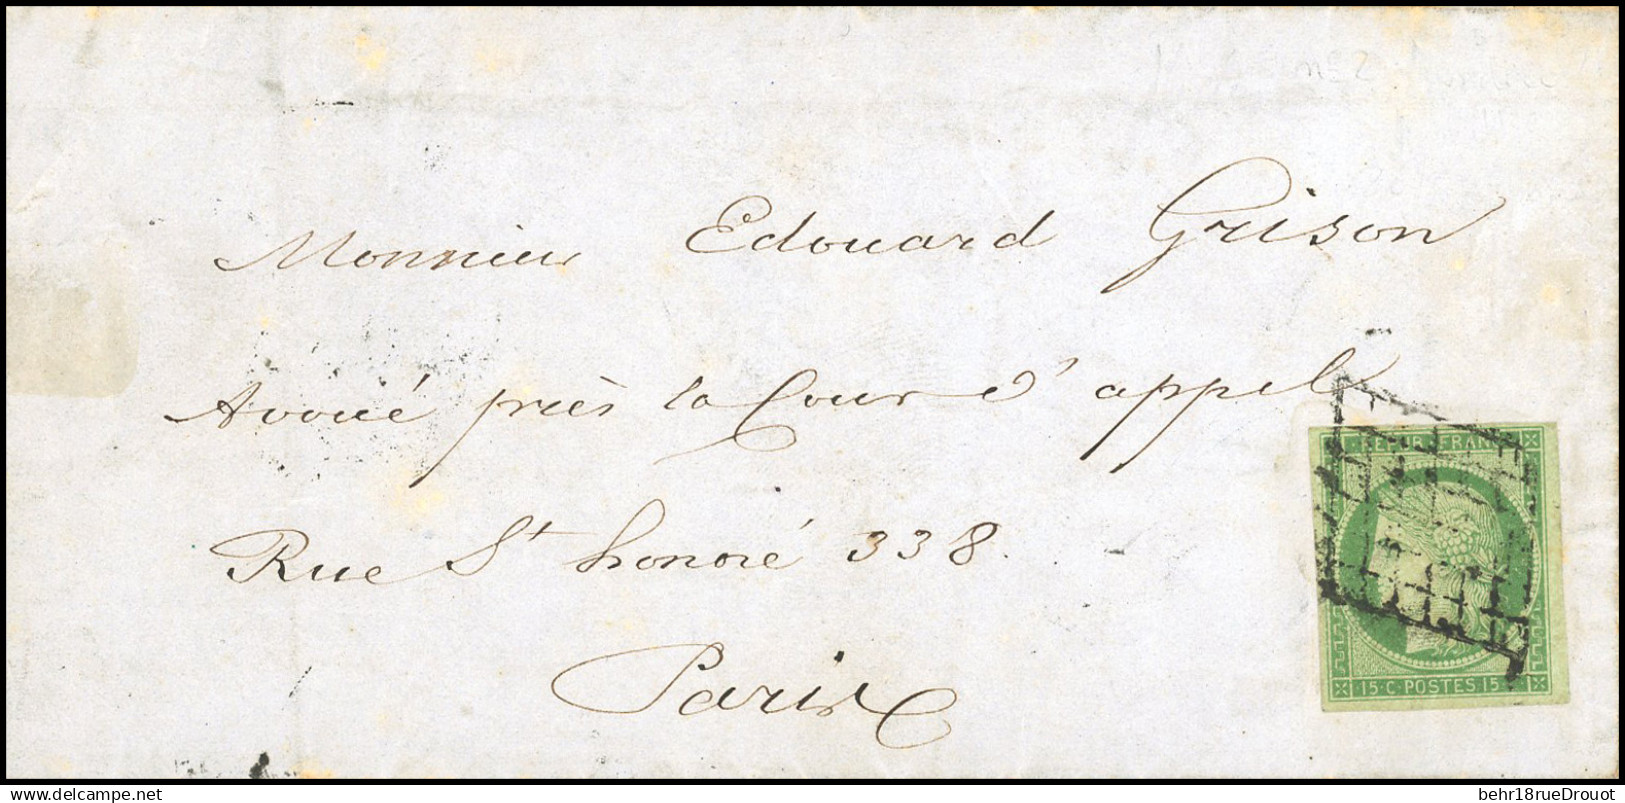 n°2
Monsieur Edouard Grison
Avoué près la Cour d'appel
Rue St honoré 338.
Paris
REPUB. FRANC
15·C. POSTES 15·C
www.delcampe.net
behr18rueDrouot